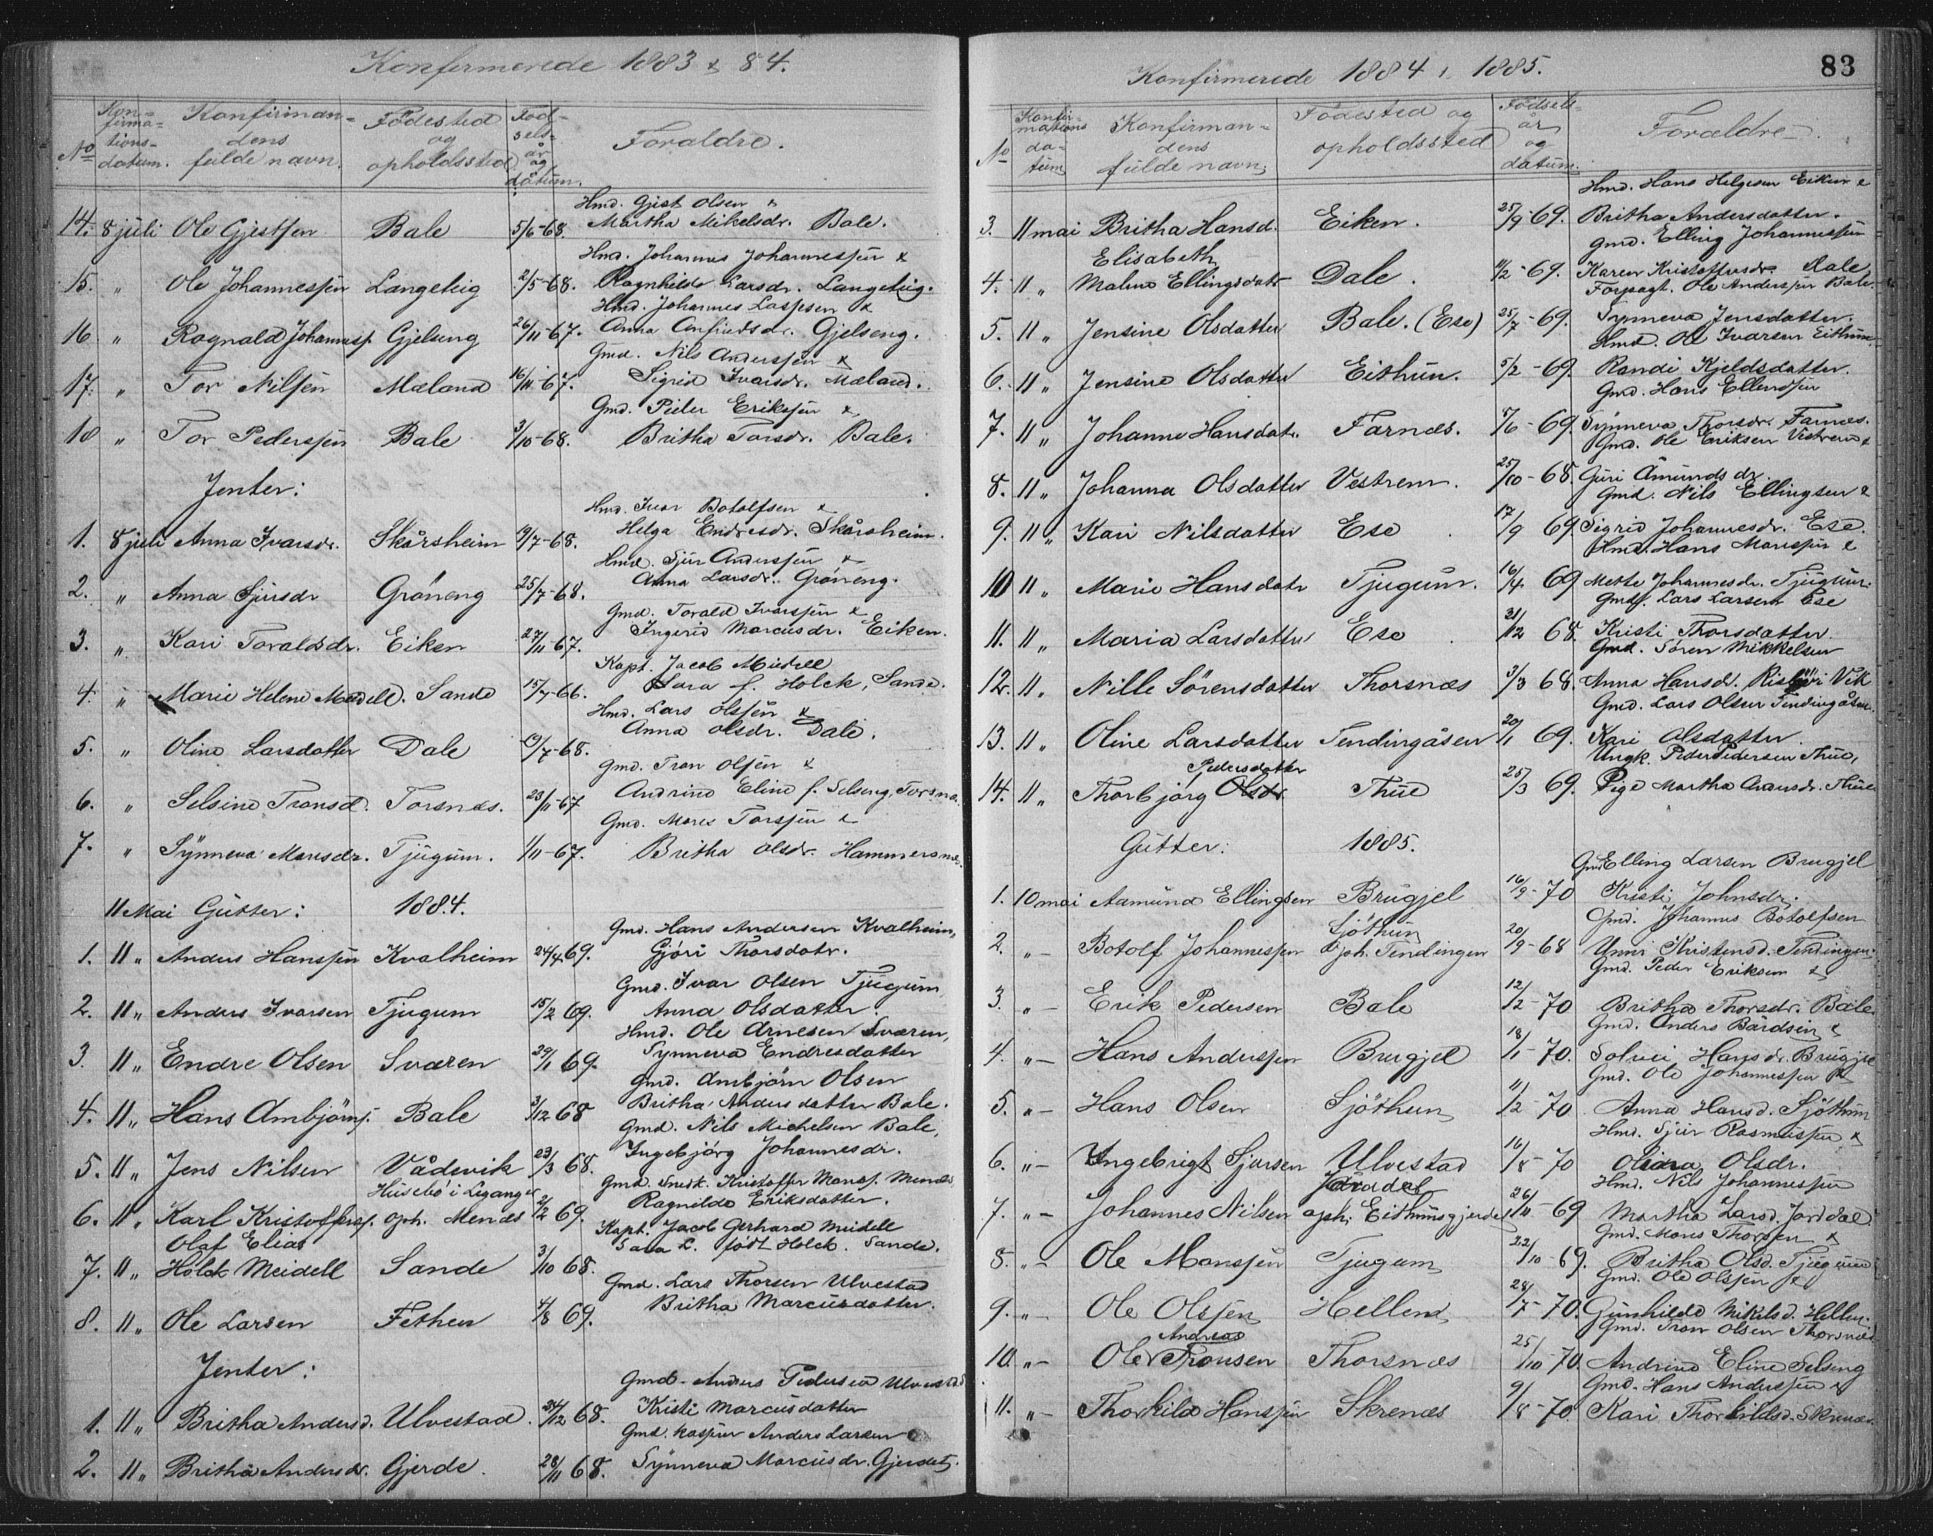 Konfirmerede 1883 & 84.
No
Konfirmationsdatum.
Konfirmandens fulde navn.
Födested og opholdssted
Födselsår og datum.
Foraldre.
Hmd. Gjest Olsen &
14. 8 juli Ole Gjestsen Bale 5/6-68. Martha Mikelsdr. Bale.
Hmd. Johannes Johannessen &
15. " Ole Johannessen Langeteig 2/5-68. Ragnhilde Larsdr. Langeteig.
Hmd. Johannes Laspsen &
16 " Ragnald Johannesp. Gjelseng 26/11-67. Anna Anfindsdr. Gjelseng.
Gmd. Nils Anderssen &
17. " Tor Nilsen Mæland 16/11-67. Sigrid Ivarsdr. Mæland.
Gmd. Peder Eriksen &
18 " Tor Pederssen Bale 3/10-68. Britha Torsdr. Bale.
Jenter:
Hmd. Ivar Botolfsen &
1. 8 juli Anna Ivarsdr. Skårsheim 9/7-68. Helga Endresdr. Skårsheim.
Hmd. Sjur Anderssen &
2. " Anna Sjursdr Gröneng 25/7-68. Anna Larsdr. Gröneng.
Gmd. Torald Ivarssen &
3. " Kari Toraldsdr. Eiken 27/11-67. Ingerid Marcusdr. Eiken.
Kapt. Jacob Meidell
4. " Marie Helene Meidell. Sande 15/7-66. Sara f. Holck, Sande.
Hmd. Lars Olsen &
5. " Oline Larsdatter Dale 19/7-68. Anna Olsdr. Dale.
Gmd. Tron Olsen &
6. " Selsine Tronsd. Torsnæs. 23/11-67 Andrine Eline f. Selseng, Torsnæ.
Gmd. Mons Torssen &
7. " Synneva Monsdr. Tjugum. 1/11-67. Britha Olsdr. Hammersnæ.
11 Mai Gutter: 1884.
Gmd. Hans Andersen Kvalheim,
1. 11 " Anders Hanssen Kvalheim 24/4 69. Gjöri Thorsdatr.
Gmd. Ivar Olsen Tjugum
2. 11 " Anders Ivarsen Tjugum 15/2 69. Anna Olsdatter.
Hmd. Ole Arnesen Sværen,
3. 11 " Endre Olsen Sværen 29/1 69. Synneva Endresdatter
Gmd. Ambjörn Olsen
4. 11 " Hans Ambjörnss. Bale 3/12 68 Britha Anders datter Bale.
Gmd. Nils Michelsen Bale,
5. 11 " Jens Nilsen Vådevik 23/3 68. Ingebjörg Johannesdr.
Husebö i Leganger Gmd. Smed. Kristoffer Monss. Mendes
6. 11 " Karl Kristoffersp. oph. Mendes 2/2 69. Ragnilde Eriksdatter.
Olaf Elias Kapt. Jacob Gerhard Meidell
7. 11 " Holck Meidell Sande 3/10 68. Sara L. född Holck. Sande.
Gmd. Lars Thorsen Ulvestad
8. 11 " Ole Larsen Fethen 4/8 69. Britha Marcusdatter.
Jenter:
Gmd. Anders Pedersen Ulvestad
1. 11 " Britha Andersd. Ulvestad. 24/12 68. Kristi Marcusdatter
Gmd. kasserer Anders Larsen
2. 11 " Britha Andersdr. Gjerde. 28/11 68. Synneva Marcusdr. Gjerdet.
83
Konfirmerede 1884 & 1885.
No
Konfirmationsdatum
Konfirmandens fulde navn,
Födested og opholdssted
Födselsår og datum.
Forældre.
Hmd. Hans Helgesen Eiken &
3. 11 mai Britha Hansd. Eiken. 25/9-69. Britha Andersdatter.
Elisabeth Gmd. Elling Johannessen
4. 11 " Malene Ellingsdatr Dale. 11/2-69. Karen Kristoffersdr. Dale
Forpagt. Ole Anderssen Bale.
5. 11 " Jensine Olsdatter Bale. (Ese) 25/7-69. Synneva Jensdatter.
Hmd. Ole Ivarsen Eithun
6. 11 " Jensine Olsdatter Eithun. 5/2-69. Randi Kjeldsdatter.
Gmd. Hans Ellendsen
7. 11 " Johanne Hansdatr. Farnæs. 5/6-69. Synneva Thorsdr. Farnæs.
Gmd. Ole Eriksen Vestrem &
8. 11 " Johanna Olsdatter Vestrem. 25/10-68. Guri Amunds dr.
Gmd. Nils Ellingsen &
9. 11 " Kari Nilsdatter Ese 17/9 69. Sigrid Johannesdr. Ese.
Hmd. Hans Monssen &
10 11 " Marie Hansdatr Tjugum. 16/4 69 Mette Johannesdr. Tjugum.
Gmd. Lars Larsen Ese
11. 11 " Maria Larsdatter Ese. 31/12 68. Kristi Thorsdatter.
Gmd. Sören Mikkelsen
12. 11 " Nille Sörensdatter Thorsnæs 3/3 68. Anna Hansdr. Vik
Gmd. Lars Olsen Tendingåsen.
13. 11 " Oline Larsdatter Tendingåsen 20/1 69. Kari Olsdatter.
Pedersdatter Ungk. Peder Pedersen Thue,
14. 11 " Thorbjörg Olsdr. Thue 25/3 69. Pige Martha Aransdr. Thue
Gutter: 1885.
Gmd Elling Larsen Brugjel
1. 10 mai Aamund Ellingsen Brugjel 16/9-70 Kristi Johnsdr.
Sjöthun Gmd. Johannes Botolfsen
2. " – Botolf Johannessen oph. Tendingen 20/9-68 Unni Kristensd. Tendingen.
Gmd. Peder Eriksen &
3. " – Erik Pedersen Bale 12/12-70 Britha Thorsdr. Bale.
Gmd. Anders Bårdsen &
4. " – Hans Anderssen Brugjel 18/11-70. Solvei Hansdr. Brugjel
Gmd. Ole Johannessen &
5. " – Hans Olsen Sjöthun 11/2-70. Anna Hansd. Sjöthun
Hmd. Sjur Rasmussen &
6. " – Ingebrigt Sjursen Ulvestad 16/8-70 Oliana Olsdr.
Jordal Hmd. Nils Johannessen
7. " – Johannes Nilsen oph: Eithunsgjerde 26/11-69 Martha Larsd. Jorddal
Gmd. Mons Thorsen &
8. " – Ole Monssen Tjugum 22/10-69. Britha Olsd. Tjugum
Gmd. Ole Olssen &
9. " – Ole Olssen Hellene 28/7-70. Gunhilde Mikelsd. Hellen.
Andreas Gmd. Tron Olsen Thorsnæs
10. " – Ole Tronsen Thorsnæs 25/10-70. Andrine Eline Selseng
Gmd. Hans Anderssen &
11. " – Thorkild Hanssen Skrenæs 9/8-70. Kari Thorkildsd. Skrenæs.